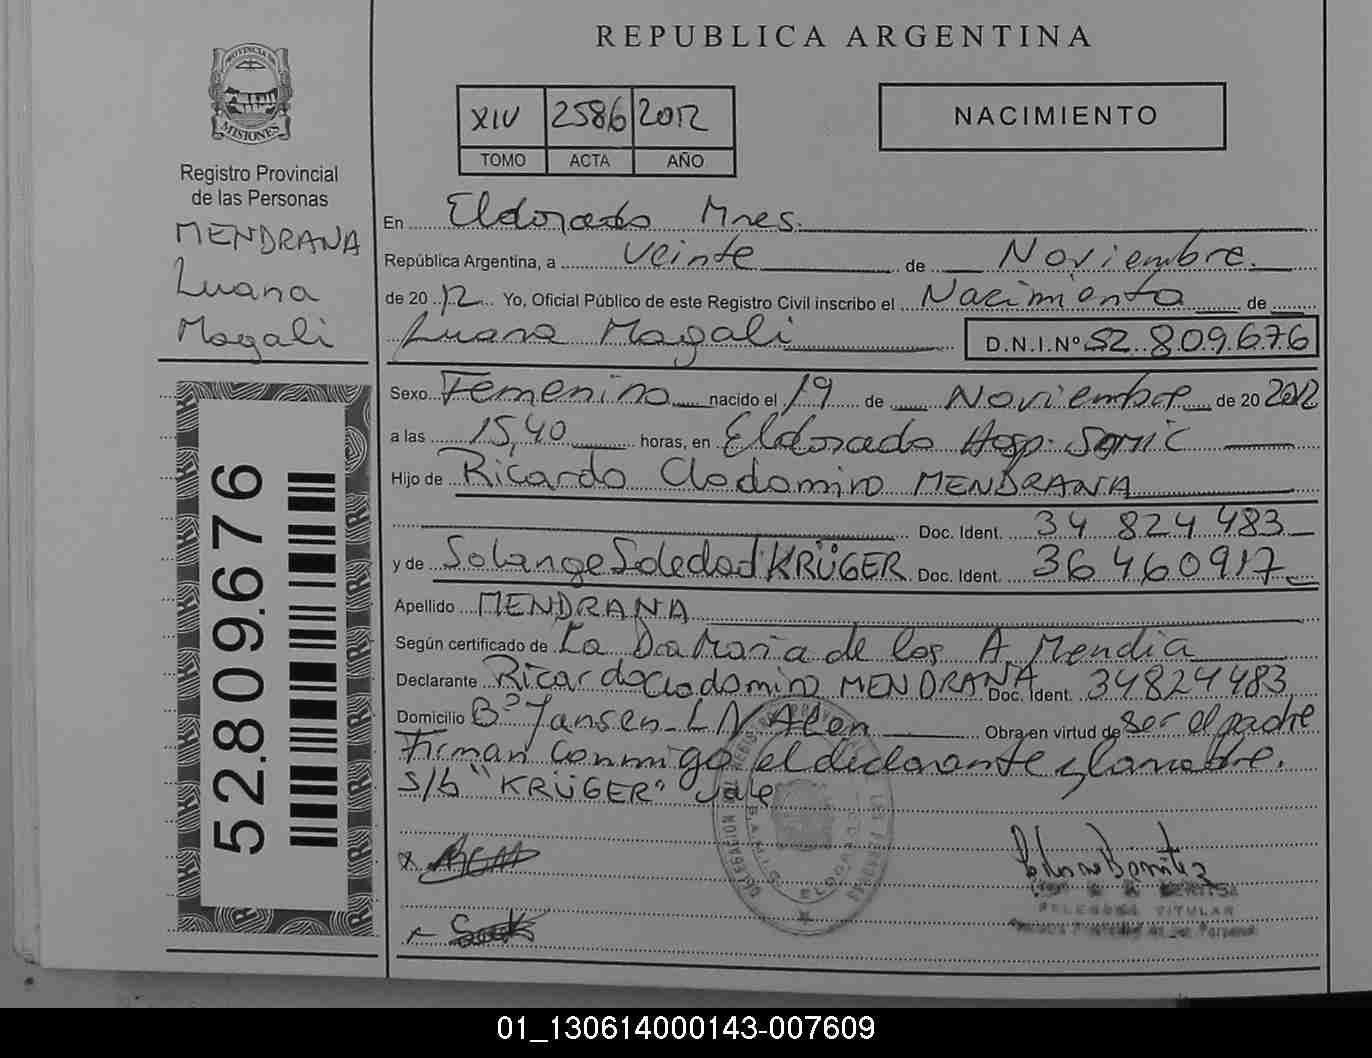 REPUBLICA ARGENTINA
PROVINCIA DE
MISIONES
Registro Provincial
de las Personas
MENDRANA
Luana
Magali
52.809.676
XIV 2586 2012
TOMO ACTA AÑO
NACIMIENTO
En Eldorado Mnes.
República Argentina, a veinte de Noviembre.
de 20 12 Yo, Oficial Público de este Registro Civil inscribo el Nacimiento de
Luana Magali D.N.I.Nº 52.809.676
Sexo Femenino nacido el 19 de Noviembre de 20 2012
a las 15,40 horas, en Eldorado Hosp. Samic
Hijo de Ricardo Clodomiro MENDRANA
Doc. Ident. 34 824 483
y de Solange Soledad KRÜGER Doc. Ident. 36460917
Apellido MENDRANA
Según certificado de La Dra Maria de los A Mendia
Declarante Ricardo Clodomiro MENDRANA Doc. Ident. 34824483
Domicilio Bº Jansen - L N Alen Obra en virtud de ser el padre
Firman conmigo el declarante y la madre.
S/b "KRÜGER" vale
ELDORADO
TITULAR
01_130614000143-007609